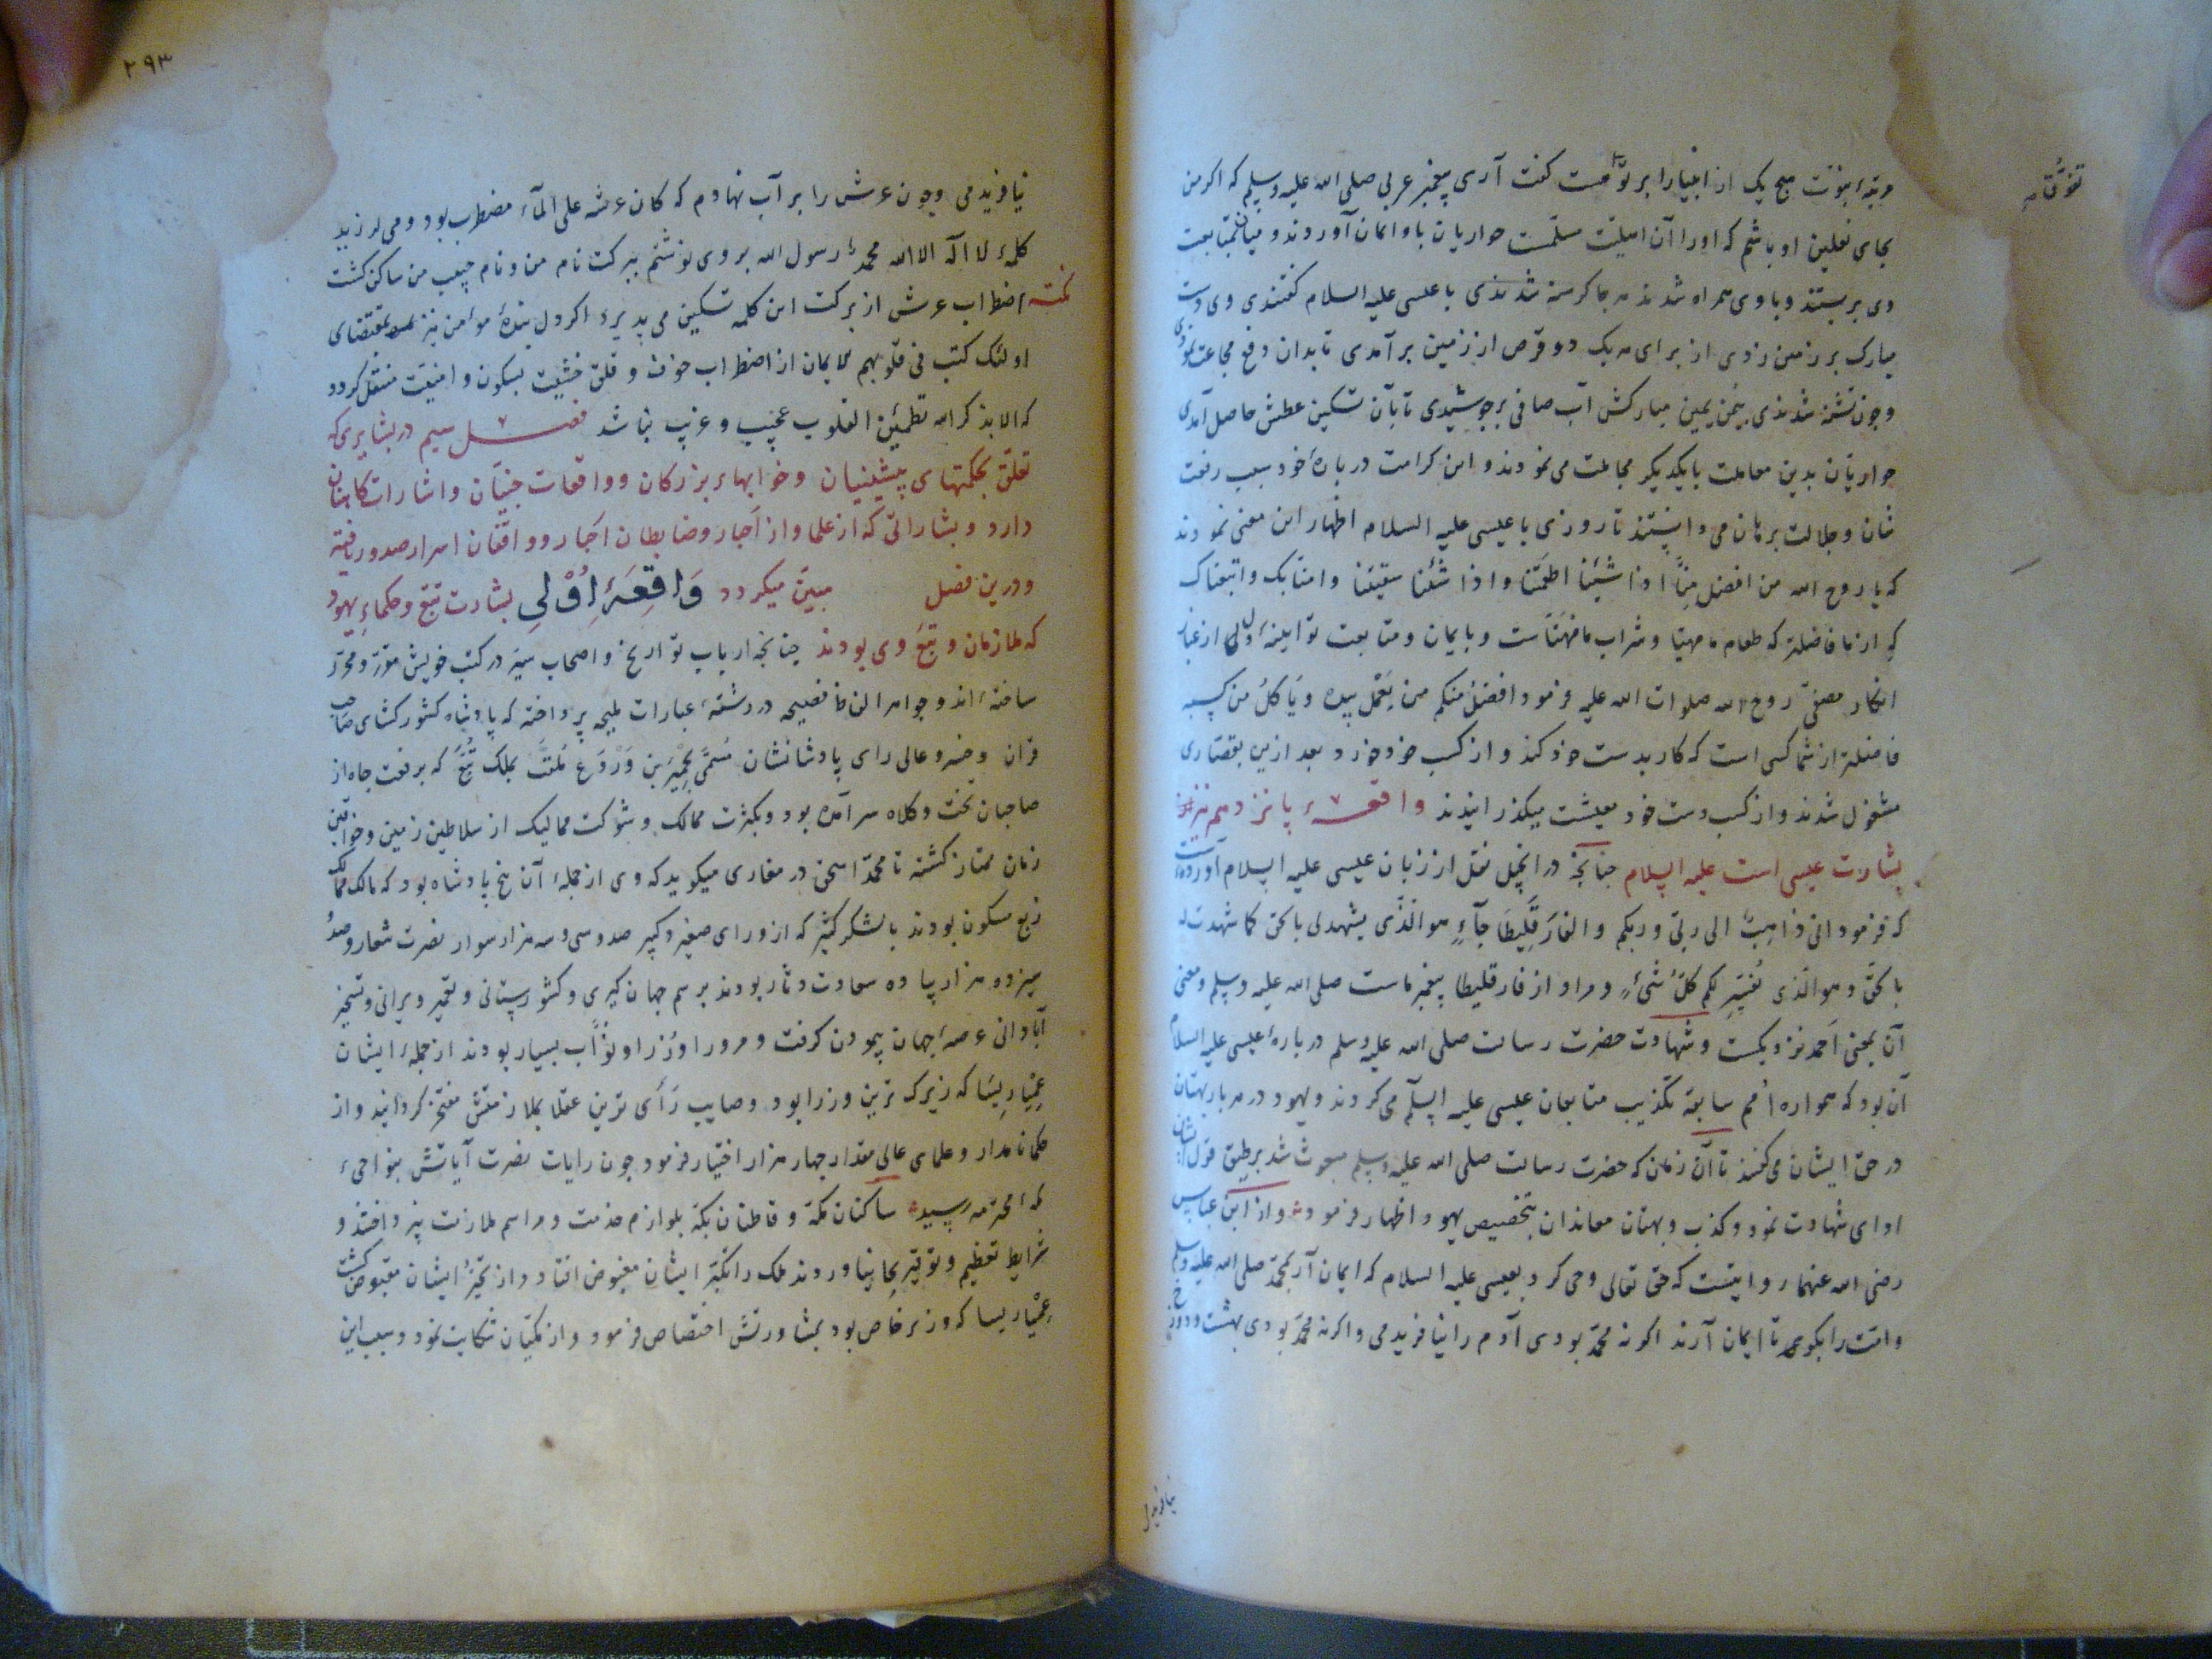 مرتبهٔ نبوّت هیچ یک از انبیا را بر تو هست گفت آری پیغمبر عربی صلی الله علیه وسلم که اکر من
تفوّق
بجای نعلین او باشم که او را آن اهلیّت مسلّمست حواریان با او ایمان آوردند و میان بمتابعت
وی بربستند و با وی همراه شدند هر جا کرسنه شدندی با عیسی علیه السلام کفتندی وی دست
مبارک بر زمین زدی از برای هر یک دو قرص از زمین برآمدی تا بدان دفع مجاعت نمودی
وچون تشنه شدندی بیمن یمین مبارکش آب صافی برجوشیدی تا بآن تسکین عطش حاصل آمدی
حواریان بدین معاملت با یکدیکر مجاملت می نمودند و این کرامت در بارهٔ خود سبب رفعت
شان و جلالت برهان می دانستند تا روزی با عیسی علیه السلام اظهار این معنی نمودند
که یا روح الله من افضل منّا اذا شئنا اطعمتنا و اذا شئنا سقیتنا و امنّا بک و اتبعناک
که از ما فاضلتر که طعام ما مهیّا و شراب ما مهنّاست و بایمان و متابعت تو
انکار مصفّی روح الله صلوات الله علیه فرمود افضل منکم من یعمل بیده و یاکل من کسبه
فاضلتر از شما کسی است که کار بدست خود کند و از کسب خود خورد بعد ازین بقصّاری
مشغول شدند و از کسب دست خود معیشت میکذرانیدند واقعهٔ پانزدهم نیز از
بشارت عیسی است علیه السلام چنانچه در انجیل نقل از زبان عیسی علیه السلام آورده است
که فرمود انی ذاهب الی ربّی و ربکم و الفارقلیطا جآء هو الّذی یشهد لی بالحق کما شهدت له
بالحقّ و هو الّذی یفسّر لکم کلّ شیء و مراد از فارقلیطا پیغمبر ماست صلی الله علیه وسلم و معنی
آن بمعنی احمد نزدیکست و شهادت حضرت رسالت صلی الله علیه وسلم در بارهٔ عیسی علیه السلام
آن بود که همواره امم سابقه تکذیب متابعان عیسی علیه السلم می کردند و یهود در هر بار بهتان
در حق ایشان می کفتند تا آن زمان که حضرت رسالت صلی الله علیه وسلم مبعوث شد بر طبق قول ایشان
ادای شهادت نمود و کذب و بهتان معاندان بتخصیص یهود اظهار فرمود و از ابن عباس
رضی الله عنهما روایتست که حق تعالی وحی کرد بعیسی علیه السلام که ایمان آر بمحمّد صلی الله علیه وسلم
و امّت را بکوی تا ایمان آرند اکر نه محمّد بودی آدم را نیافریدمی و اکر نه محمّد بودی بهشت و دوزخ
نیافریدمی
۲۹۳
نیافریدمی و چون عرش را بر آب نهادم که کان عرشه علی المآء مضطرب بود و می لرزید
کلمهٔ لا اله الا الله محمّد رسول الله بر وی نوشتم ببرکت نام من و نام حبیب من ساکن کشت
نکته اضطراب عرش از برکت این کلمه تسکین می پذیرد اکر دل بندهٔ مؤمن نیز بمقتضای
اولئک کتب فی قلوبهم الایمان از اضطراب خوف و قلق خشیت بسکون و امنیّت منتقل کردد
که الا بذکر الله تطمئن القلوب عجیب و غریب نباشد فصل سیم در بشایری که
تعلّق بحکمتهای پیشینیان و خوابهاء بزرکان و واقعات جنّیان و اشارات کاهنان
دارد و بشاراتی که از علما و از احبار و ضابطان اخبار و واقفان اسرار صدور یافته
و درین فصل مبیّن میکردد واقعهٔ اولی بشارت تبّع و حکماء یهود
که ملازمان و تبع وی بودند چنانچه ارباب تواریخ و اصحاب سیر در کتب خویش مقرّر و محرّر
ساخته اند و جواهر الفاظ فصیحه در رشتهٔ عبارات ملیحه پرداخته که پادشاه کشورکشای صاحب
قران و خسرو عالی رای پادشاه نشان مسمّی بحمیر بن وردع ملقّب بملک تبّع که برفعت جاه از
صاحبان تخت و کلاه سرآمده بود و بکثرت ممالک و شوکت ممالیک از سلاطین زمین و خواقین
زمان ممتاز کشته تا محمّد اسحق در مغازی میکوید که وی از جملهٔ آن پنج پادشاه بود که مالک ممالک
ربع مسکون بودند با لشکر کثیر که از ورای صغیر و کبیر صد و سی و سه هزار سوار نصرت شعار و صد
سیزده هزار پیاده سعادت دثار بودند برسم جهان کیری و کشورستانی و تعمیر ویرانی و تسخیر
آبادانی عرصهٔ جهان پیمودن کرفت و مر او را وزرا و نوّاب بسیار بودند از جملهٔ ایشان
عمیاریسا که زیرک ترین وزرا بود و صایب رأی ترین عقلا بملازمتش مفتخر کردانید و از
حکماء نامدار و علمای عالی مقدار چهار هزار اختیار فرمود چون رایات نصرت آیاتش بنواحیء
مکهٔ محترمه رسید ساکنان مکّه و قاطنان بکّه بلوازم خدمت و مراسم ملازمت نپرداختند و
شرایط تعظیم و توقیر بجا نیاوردند ملک را تکبّر ایشان مبغوض افتاد و از تجبّر ایشان مقبوض کشت
عمیاریسا که وزیر خاص بود بمشاورتش اختصاص فرمود و از مکیّان شکایت نمود و سبب این